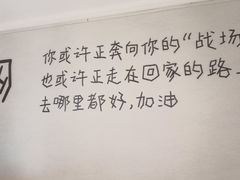 你或许正奔向你的“战场
也或许正走在回家的路
去哪里都好,加油